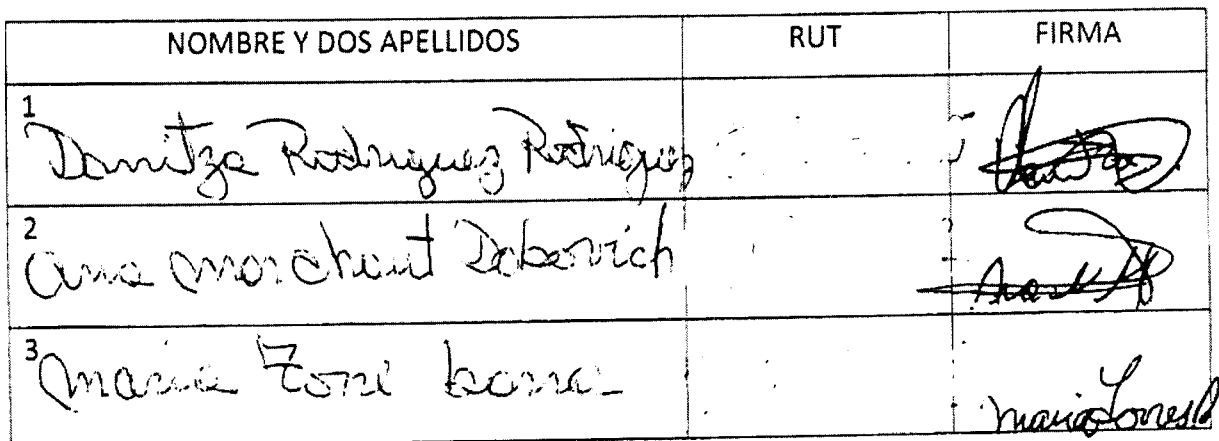 NOMBRE Y DOS APELLIDOS RUT FIRMA
1 Danitza Rodriguez Rodriguez
2 Ana Marchant
3 Maria
Maria Torres B